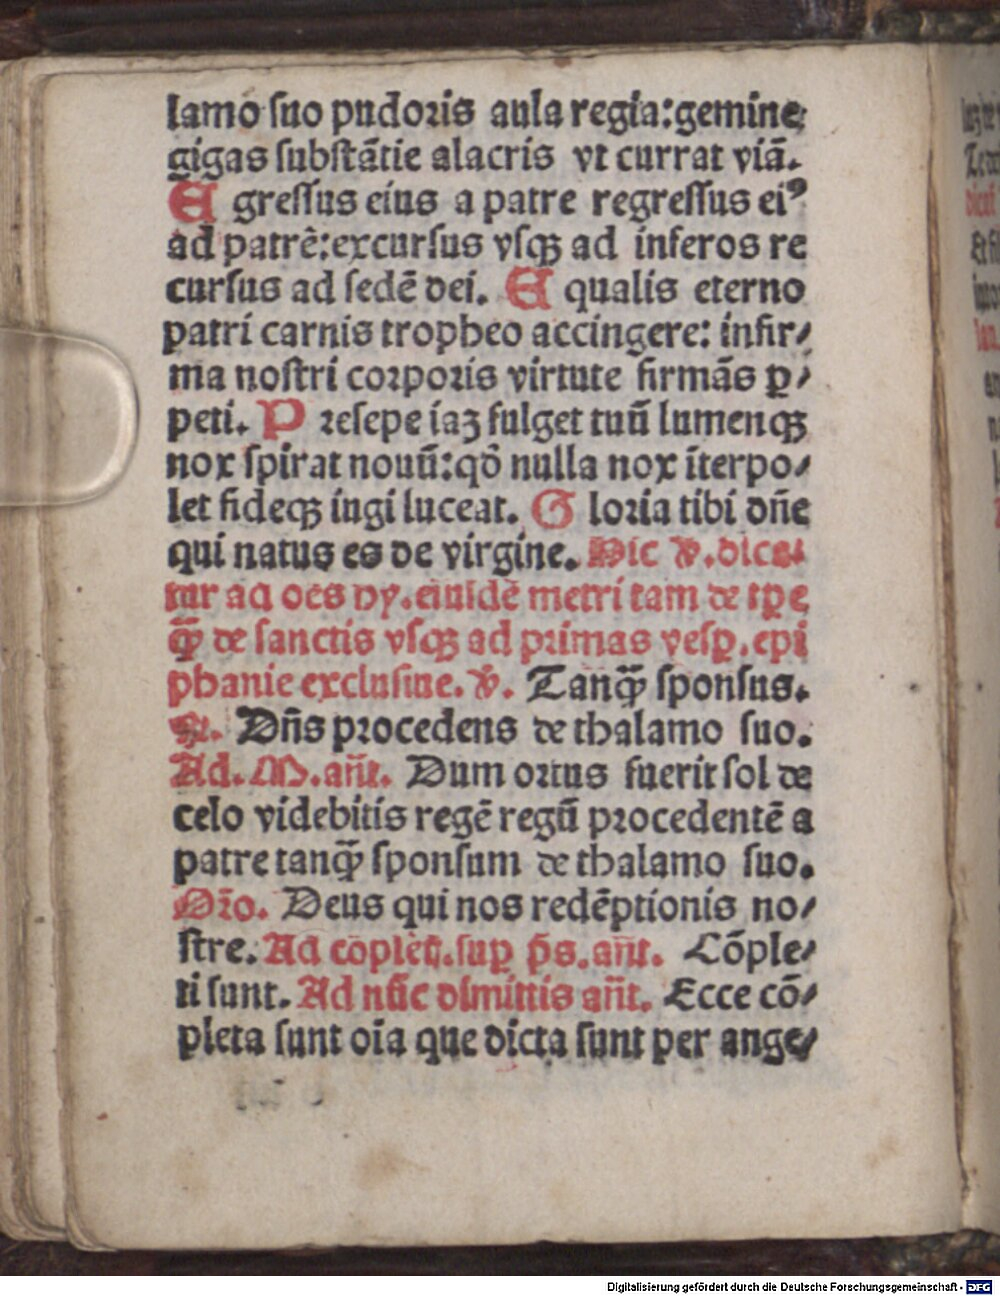 lamo suo pudoris aula regia:gemine
gigas substātie alacris vt currat viā.
E gressus eius a patre regressus eiꝰ
ad patrē:excursus vsqꝫ ad inferos re
cursus ad sedē dei. E qualis eterno
patri carnis tropheo accingere: infir⸗
ma nostri corporis virtute firmās ꝑ⸗
peti. P resepe iaꝫ fulget tuū lumenqꝫ
nox spirat nouū:qđ nulla nox īterpo⸗
let fideqꝫ iugi luceat. G loria tibi dn̄e
qui natus es de virgine. Hic ℣. dice⸗
tur ad oēs hy. eiusdē metri tam de tp̄e
qꝫ̄ de sanctis vsqꝫ ad primas vesꝑ. epi
phanie exclusiue. ℣. Tanqꝫ̄ sponsus.
℟. Dn̄s procedens de thalamo suo.
Ad. M. an̄t. Dum ortus fuerit sol de
celo videbitis regē regū procedentē a
patre tanqꝫ̄ sponsum de thalamo suo.
Orō. Deus qui nos redēptionis no⸗
stre. Ad cōplet̄. suꝑ p̄s. an̄t. Cōple⸗
ti sunt. Ad nūc dimittis an̄t. Ecce cō⸗
pleta sunt oīa que dicta sunt per ange⸗
Digitalisierung gefördert durch die Deutsche Forschungsgemeinschaft - DFG